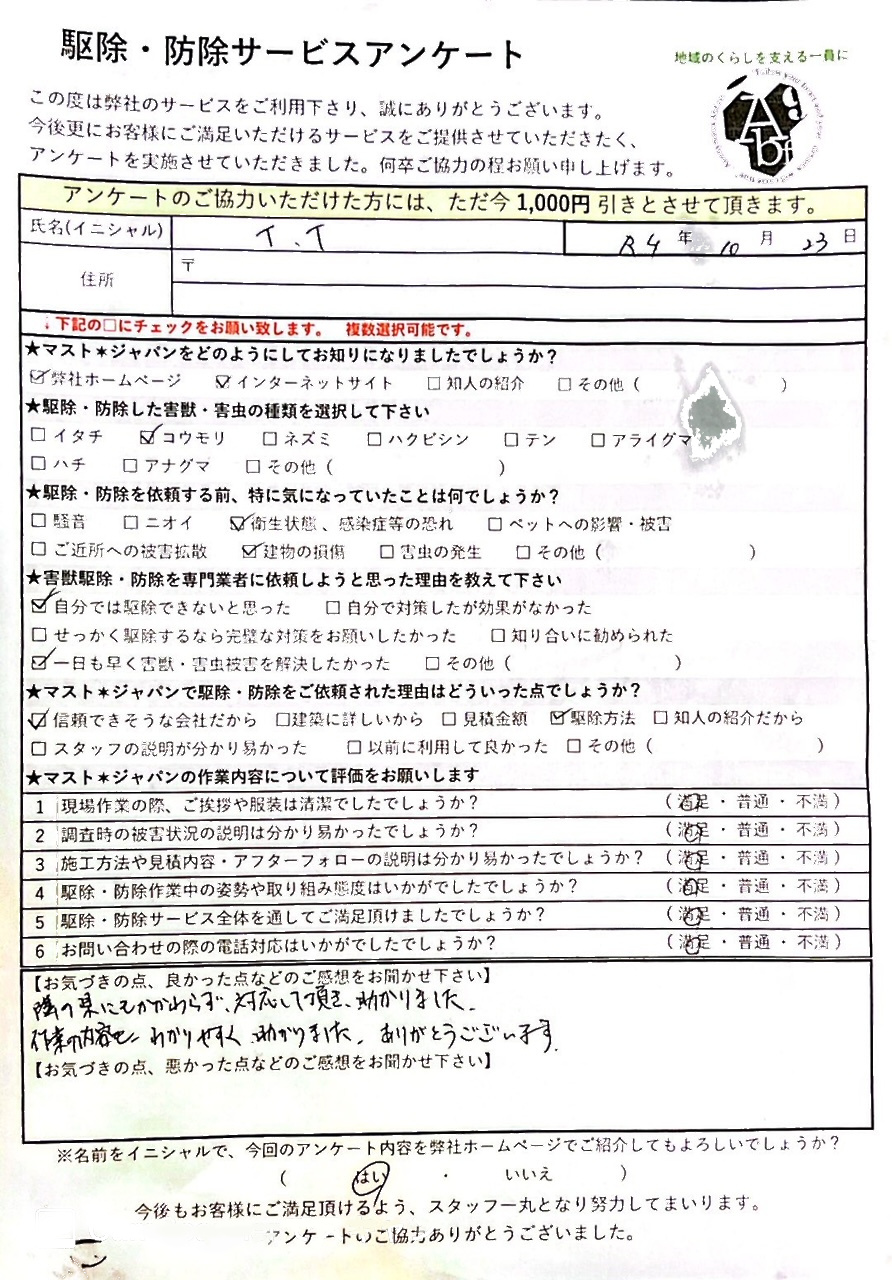 駆除・防除サービスアンケート
地域のくらしを支える一員に
この度は弊社のサービスをご利用下さり、誠にありがとうございます。
今後更にお客様にご満足いただけるサービスをご提供させていただきたく、
アンケートを実施させていただきました。何卒ご協力の程お願い申し上げます。
Ag
bf
アンケートのご協力いただけた方には、ただ今 1,000円 引きとさせて頂きます。
氏名(イニシャル) T.T R4 年 10 月 23 日
住所 〒
↓下記の□にチェックをお願い致します。 複数選択可能です。
★マスト✶ジャパンをどのようにしてお知りになりましたでしょうか？
☑弊社ホームページ ☑インターネットサイト □知人の紹介 □その他（ ）
★駆除・防除した害獣・害虫の種類を選択して下さい
□イタチ ☑コウモリ □ネズミ □ハクビシン □テン □アライグマ
□ハチ □アナグマ □その他（ ）
★駆除・防除を依頼する前、特に気になっていたことは何でしょうか？
□騒音 □ニオイ ☑衛生状態、感染症等の恐れ □ペットへの影響・被害
□ご近所への被害拡散 ☑建物の損傷 □害虫の発生 □その他（ ）
★害獣駆除・防除を専門業者に依頼しようと思った理由を教えて下さい
☑自分では駆除できないと思った □自分で対策したが効果がなかった
□せっかく駆除するなら完璧な対策をお願いしたかった □知り合いに勧められた
☑一日も早く害獣・害虫被害を解決したかった □その他（ ）
★マスト✶ジャパンで駆除・防除をご依頼された理由はどういった点でしょうか？
☑信頼できそうな会社だから □建築に詳しいから □見積金額 ☑駆除方法 □知人の紹介だから
□スタッフの説明が分かり易かった □以前に利用して良かった □その他（ ）
★マスト✶ジャパンの作業内容について評価をお願いします
1 現場作業の際、ご挨拶や服装は清潔でしたでしょうか？ （満足・普通・不満）
2 調査時の被害状況の説明は分かり易かったでしょうか？ （満足・普通・不満）
3 施工方法や見積内容・アフターフォローの説明は分かり易かったでしょうか？ （満足・普通・不満）
4 駆除・防除作業中の姿勢や取り組み態度はいかがでしたでしょうか？ （満足・普通・不満）
5 駆除・防除サービス全体を通してご満足頂けましたでしょうか？ （満足・普通・不満）
6 お問い合わせの際の電話対応はいかがでしたでしょうか？ （満足・普通・不満）
【お気づきの点、良かった点などのご感想をお聞かせ下さい】
隣の県にもかかわらず、対応して頂き、助かりました。
作業の内容も わかりやすく 助かりました。ありがとうございます。
【お気づきの点、悪かった点などのご感想をお聞かせ下さい】
※名前をイニシャルで、今回のアンケート内容を弊社ホームページでご紹介してもよろしいでしょうか？
（ はい ・ いいえ ）
今後もお客様にご満足頂けるよう、スタッフ一丸となり努力してまいります。
アンケートのご協力ありがとうございました。